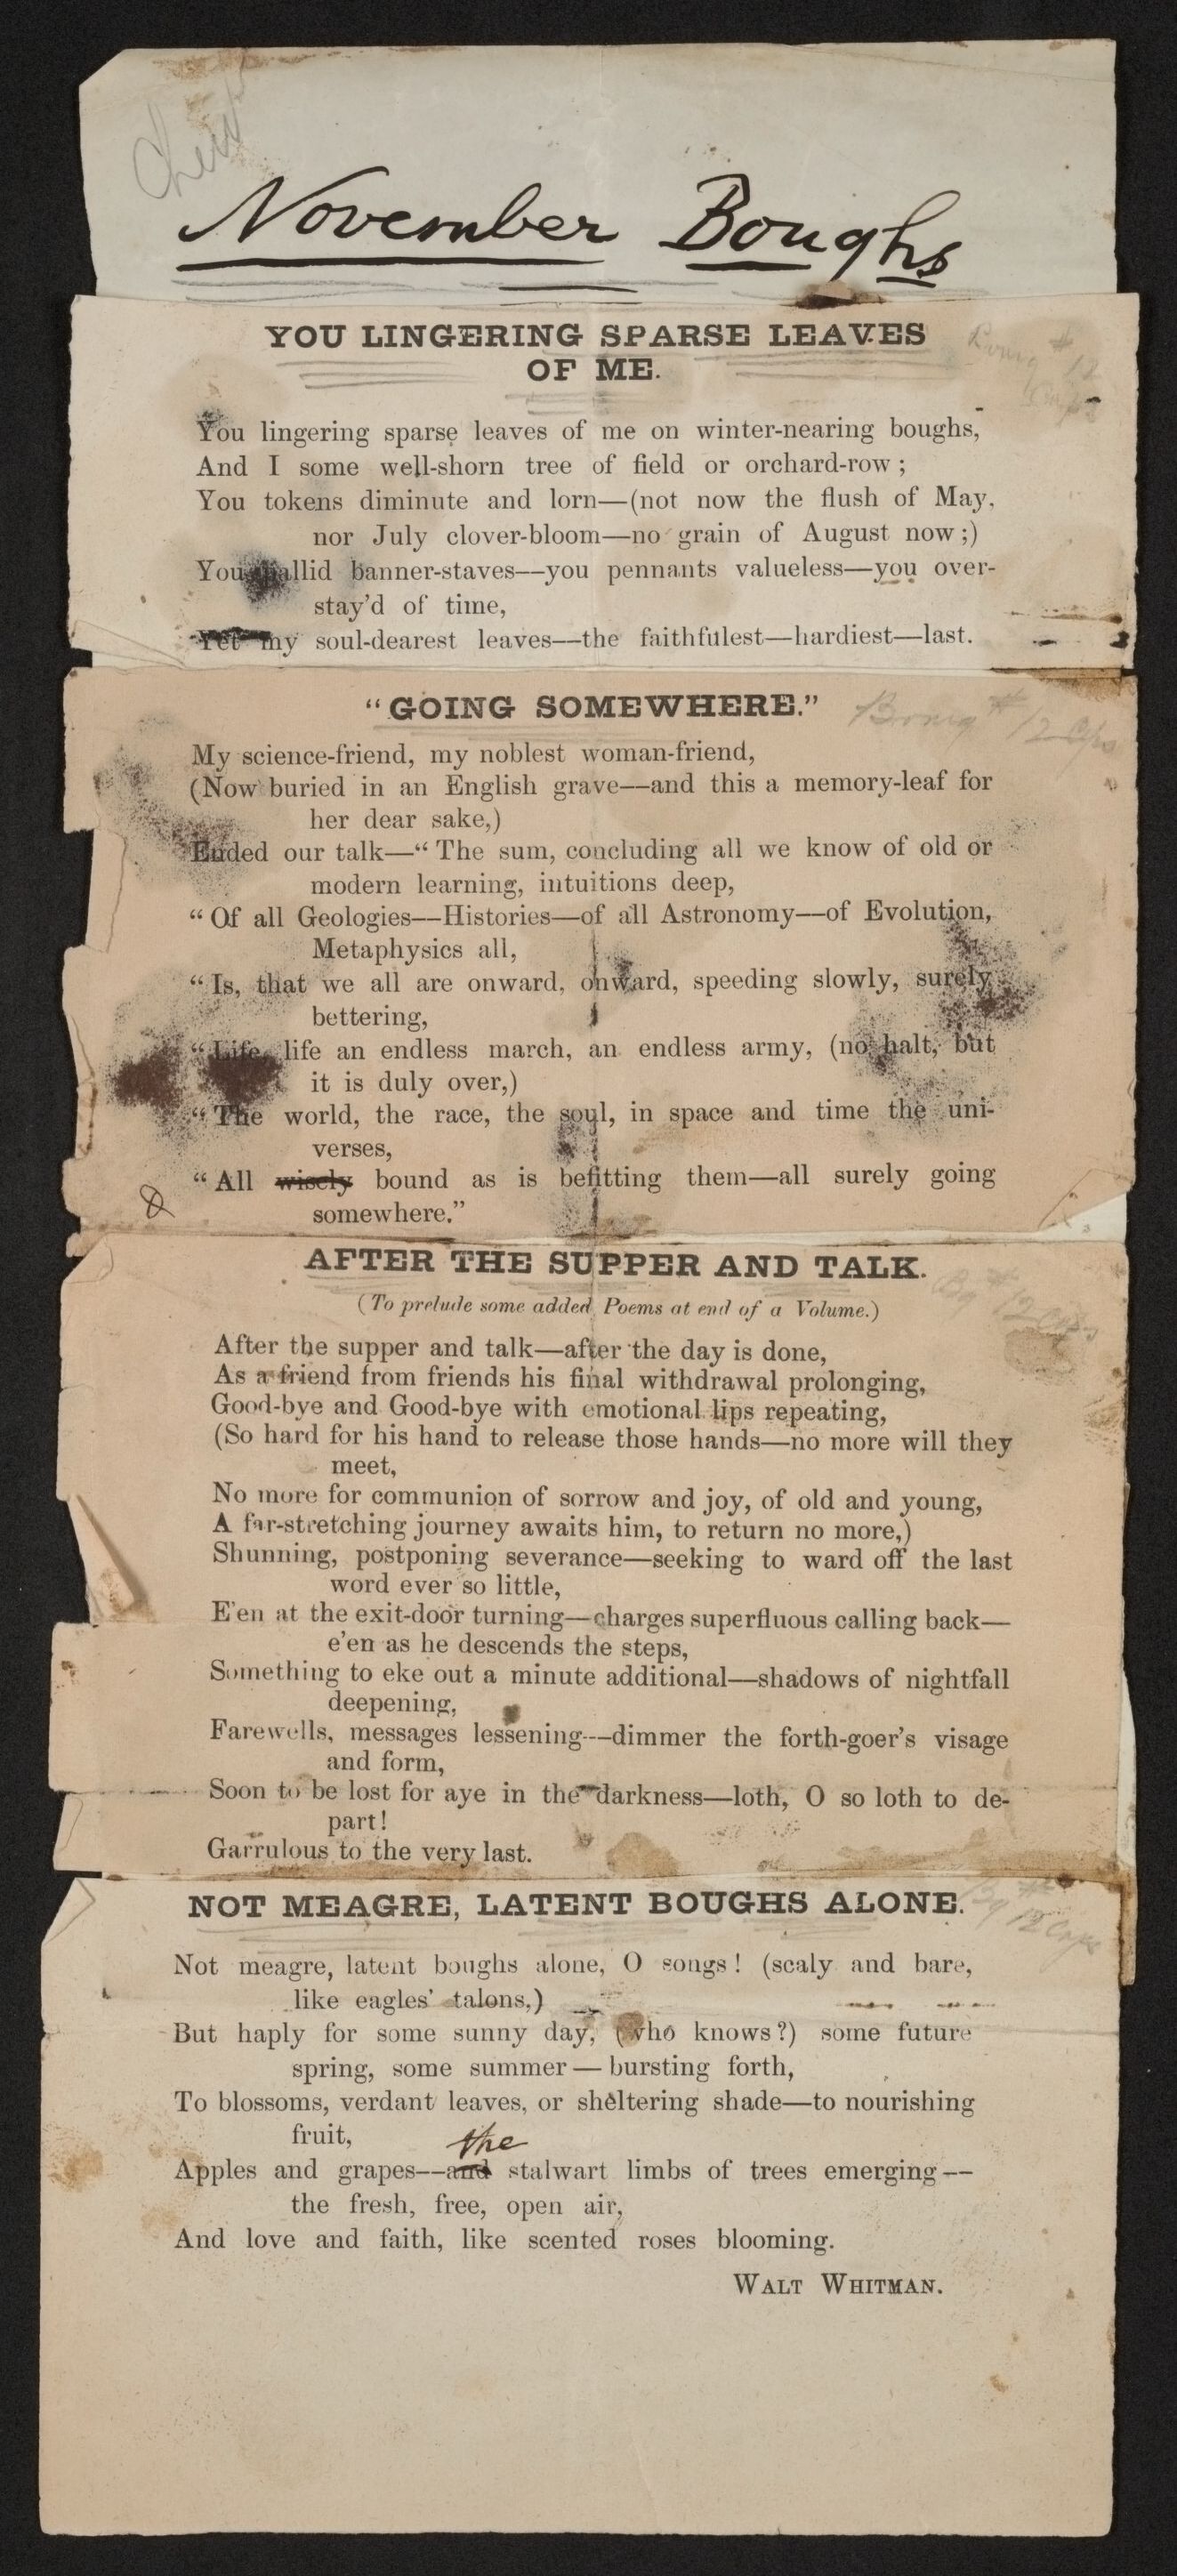 November Boughs
YOU LINGERING SPARSE LEAVES
OF ME.
You lingering sparse leaves of me on winter-nearing boughs,
And I some well-shorn tree of field or orchard-row ;
You tokens diminute and lorn—(not now the flush of May,
nor July clover-bloom—no grain of August now ;)
You pallid banner-staves—you pennants valueless—you over-
stay'd of time,
Yet my soul-dearest leaves—the faithfulest—hardiest—last.
"GOING SOMEWHERE."
My science-friend, my noblest woman-friend,
(Now buried in an English grave—and this a memory-leaf for
her dear sake,)
Ended our talk—" The sum, concluding all we know of old or
modern learning, intuitions deep,
" Of all Geologies—Histories—of all Astronomy—of Evolution,
Metaphysics all,
" Is, that we all are onward, onward, speeding slowly, surely
bettering,
" Life, life an endless march, an endless army, (no halt, but
it is duly over,)
" The world, the race, the soul, in space and time the uni-
verses,
" All wisely bound as is befitting them—all surely going
somewhere."
AFTER THE SUPPER AND TALK.
(To prelude some added Poems at end of a Volume.)
After the supper and talk—after the day is done,
As a friend from friends his final withdrawal prolonging,
Good-bye and Good-bye with emotional lips repeating,
(So hard for his hand to release those hands—no more will they
meet,
No more for communion of sorrow and joy, of old and young,
A far-stretching journey awaits him, to return no more,)
Shunning, postponing severance—seeking to ward off the last
word ever so little,
E'en at the exit-door turning—charges superfluous calling back—
e'en as he descends the steps,
Something to eke out a minute additional—shadows of nightfall
deepening,
Farewells, messages lessening—dimmer the forth-goer's visage
and form,
Soon to be lost for aye in the darkness—loth, O so loth to de-
part!
Garrulous to the very last.
NOT MEAGRE, LATENT BOUGHS ALONE.
Not meagre, latent boughs alone, O songs! (scaly and bare,
like eagles' talons,)
But haply for some sunny day, (who knows?) some future
spring, some summer — bursting forth,
To blossoms, verdant leaves, or sheltering shade—to nourishing
fruit,
the
Apples and grapes—and stalwart limbs of trees emerging—
the fresh, free, open air,
And love and faith, like scented roses blooming.
WALT WHITMAN.